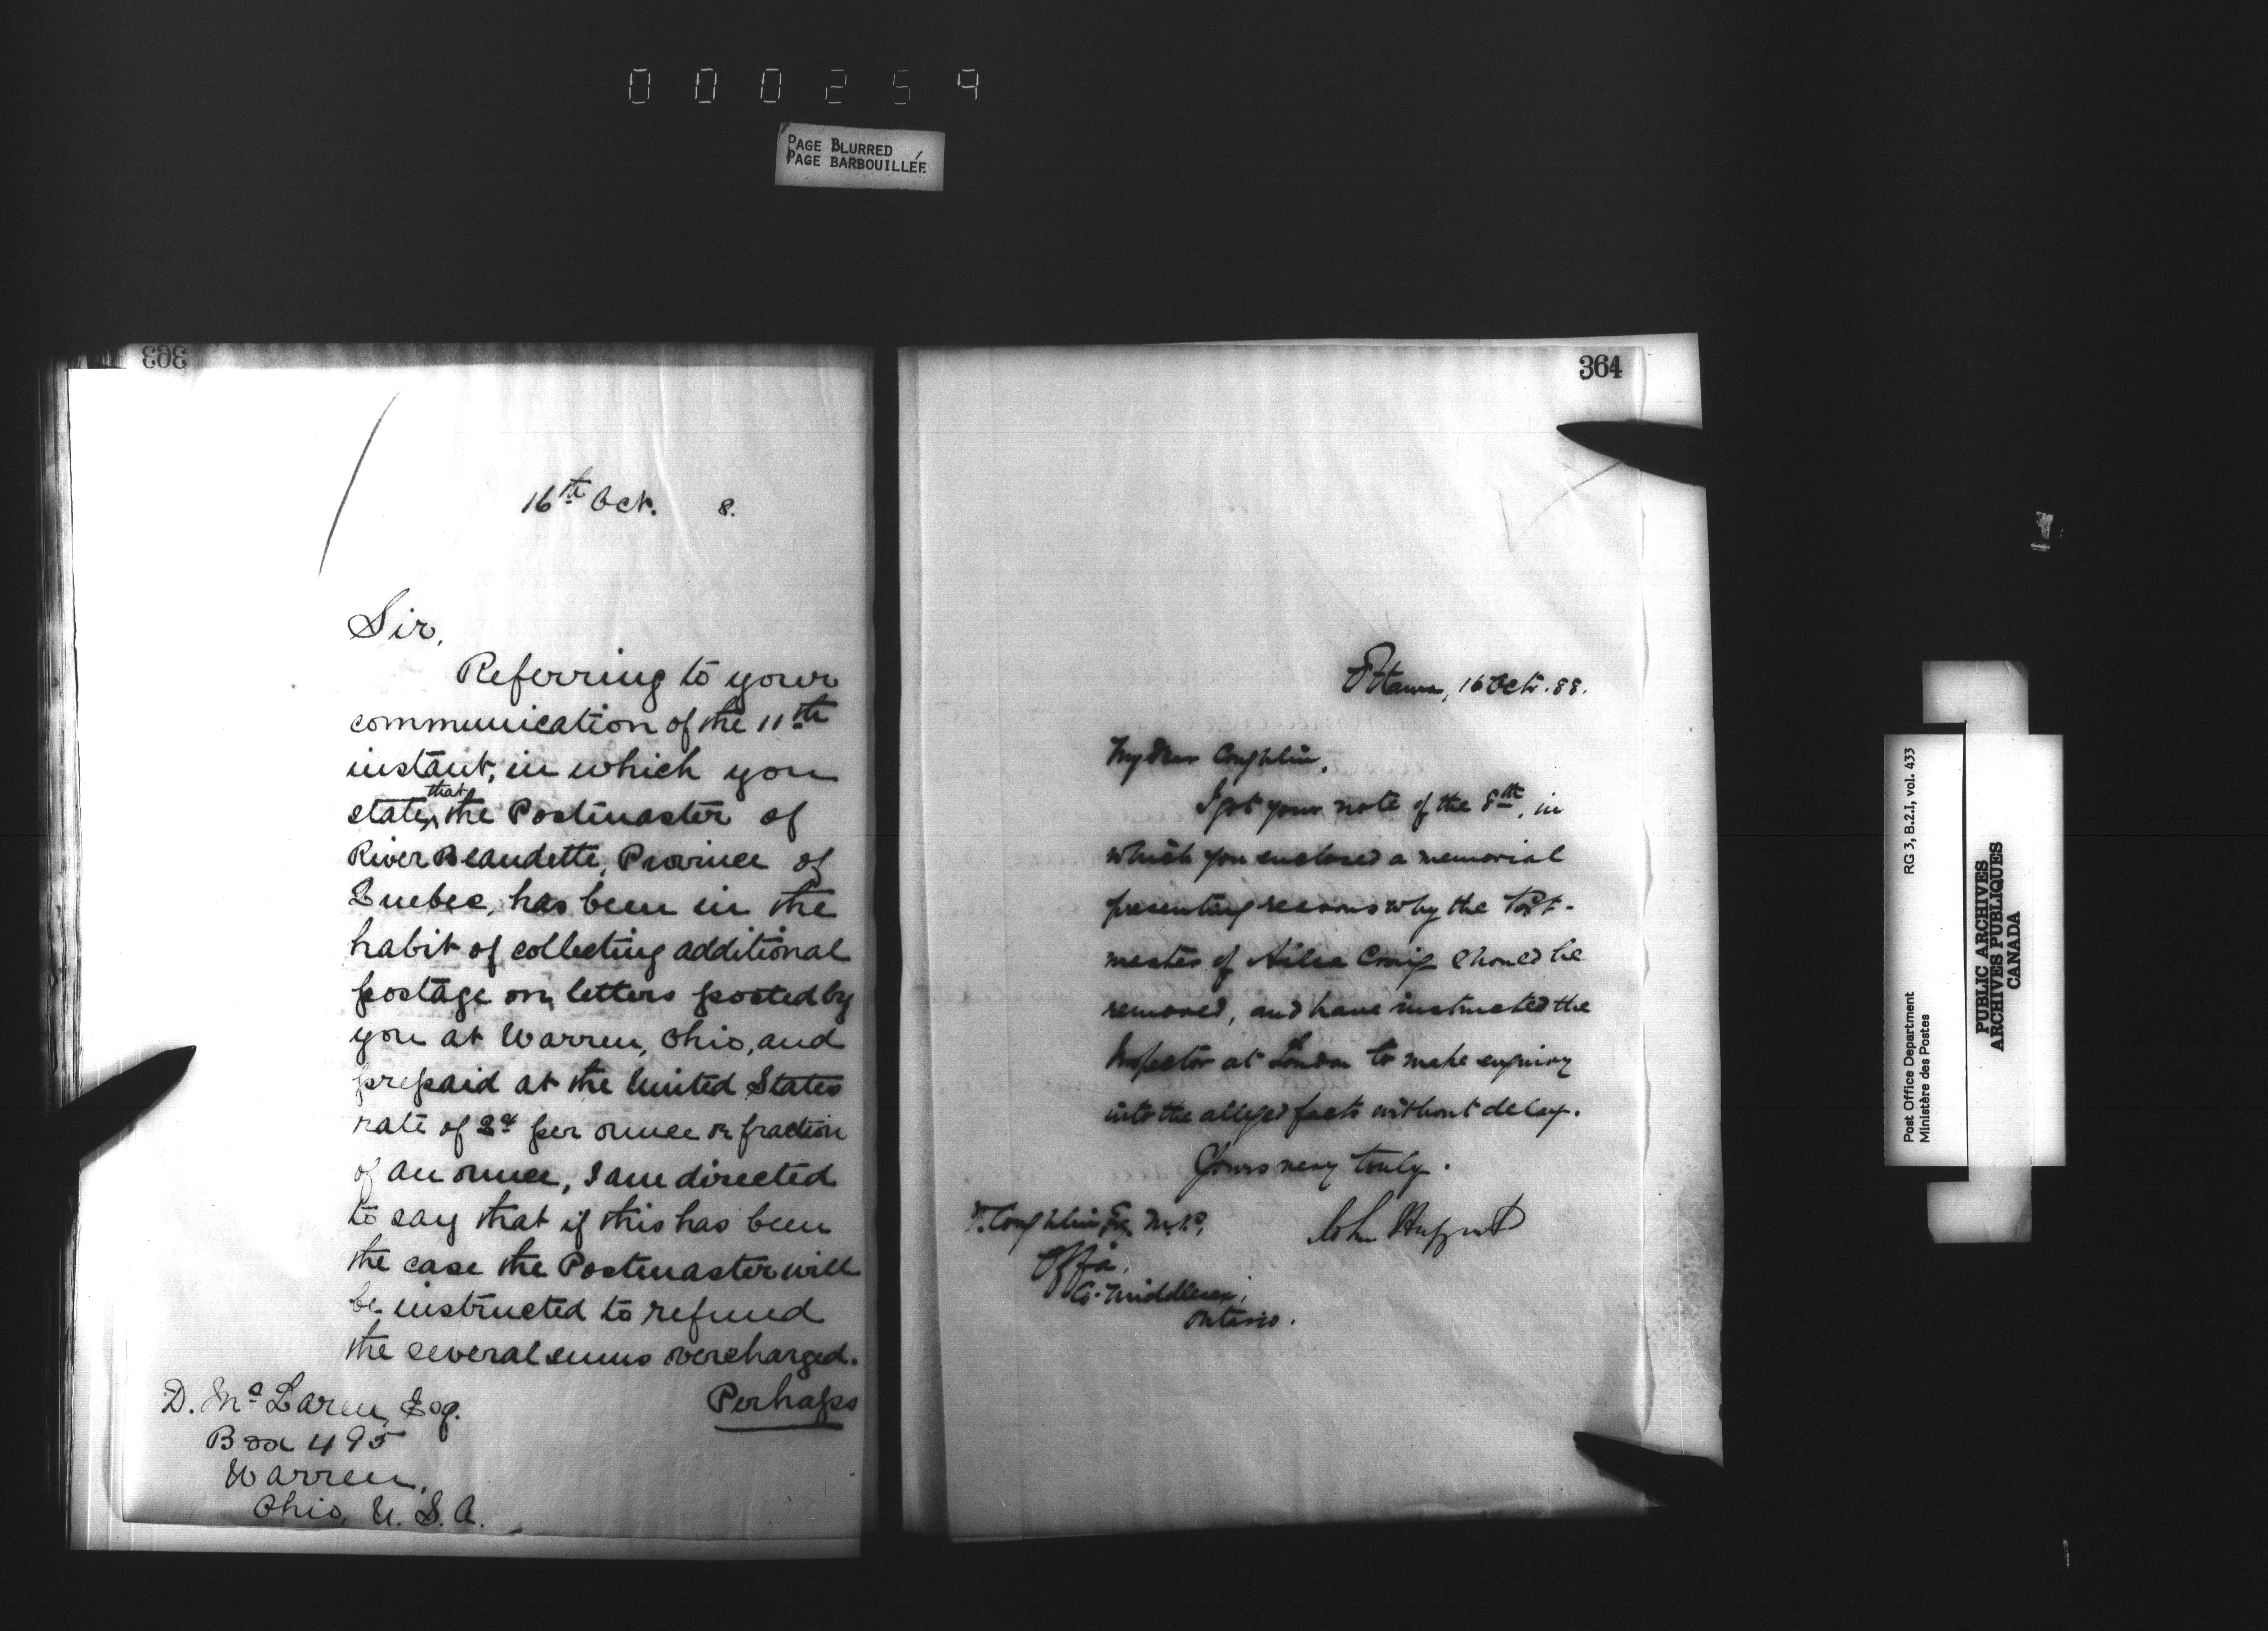 000259
PAGE BLURRED
PAGE BARBOUILLÉE
363
16th Oct. 8.
Sir,
Referring to your
communication of the 11th
instant, in which you
state, that the Postmaster of
River Beaudette, Province of
Quebec, has been in the
habit of collecting additional
postage on letters posted by
you at Warren, Ohio, and
prepaid at the United States
rate of 2¢ per ounce or fraction
of an ounce, I am directed
to say that if this has been
the case the Postmaster will
be instructed to refund
the several sums overcharged.
Perhaps
D. Mc Laren, Esq.
Box 495
Warren,
Ohio, U. S. A.
364
Ottawa, 16 Oct. 88.
My dear Coughlin,
I got your note of the 8th, in
which you enclosed a memorial
presenting reasons why the Post-
master of Ailsa Craig should be
removed, and have instructed the
Inspector at London to make enquiry
into the alleged facts without delay.
Yours very truly.
John Haggart
T. Coughlin Esq. M.P.,
Offa,
Co. Middlesex,
Ontario.
Post Office Department RG 3, B.2.I, vol. 433
Ministère des Postes
PUBLIC ARCHIVES
ARCHIVES PUBLIQUES
CANADA